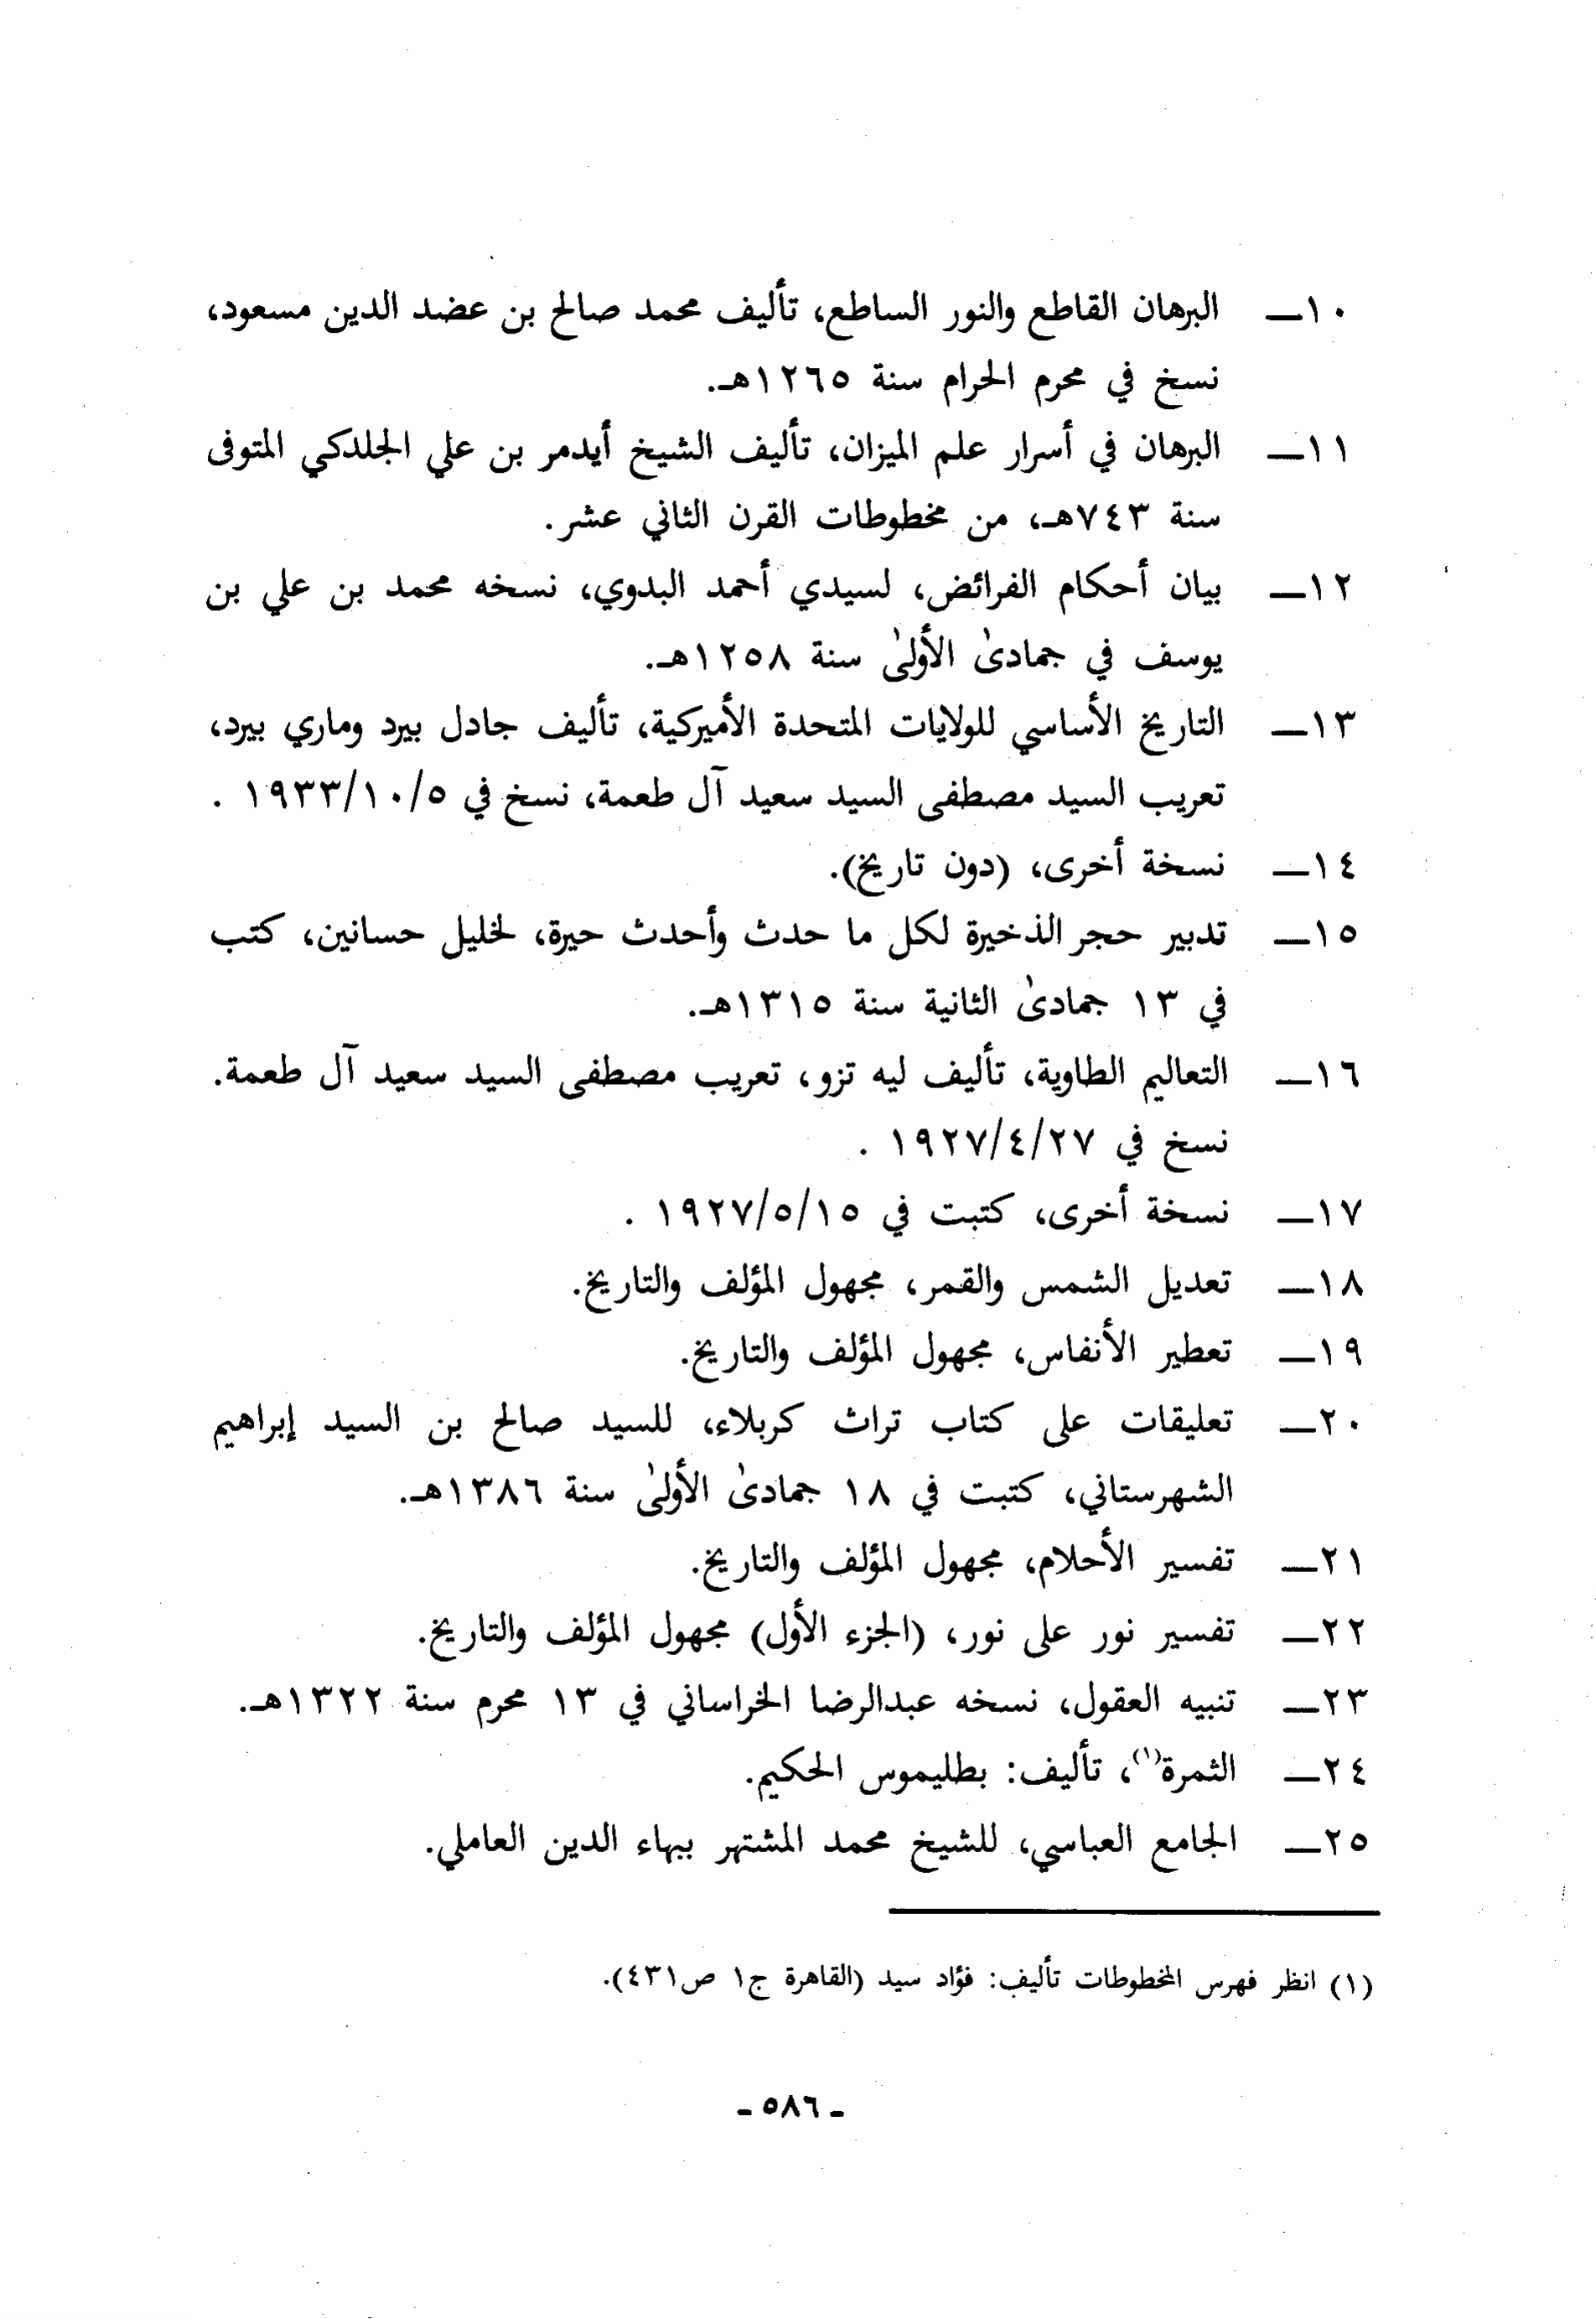 ١٠ــ البرهان القاطع والنور الساطع، تأليف محمد صالح بن عضد الدين مسعود،
نسخ في محرم الحرام سنة ١٢٦٥هـ.
١١ــ البرهان في أسرار علم الميزان، تأليف الشيخ أيدمر بن علي الجلدكي المتوفى
سنة ٧٤٣هـ، من مخطوطات القرن الثاني عشر.
١٢ــ بيان أحكام الفرائض، لسيدي أحمد البدوي، نسخه محمد بن علي بن
يوسف في جمادىٰ الأولىٰ سنة ١٢٥٨هـ.
١٣ــ التاريخ الأساسي للولايات المتحدة الأميركية، تأليف جادل بيرد وماري بيرد،
تعريب السيد مصطفى السيد سعيد آل طعمة، نسخ في ١٩٣٣/١٠/٥ .
١٤ــ نسخة أخرى، (دون تاريخ).
١٥ــ تدبير حجر الذخيرة لكل ما حدث وأحدث حيرة، لخليل حسانين، كتب
في ١٣ جمادىٰ الثانية سنة ١٣١٥هـ.
١٦ــ التعاليم الطاوية، تأليف ليه تزو، تعريب مصطفى السيد سعيد آل طعمة.
نسخ في ١٩٢٧/٤/٢٧ .
١٧ــ نسخة أخرى، كتبت في ١٩٢٧/٥/١٥ .
١٨ــ تعديل الشمس والقمر، مجهول المؤلف والتاريخ.
١٩ــ تعطير الأنفاس، مجهول المؤلف والتاريخ.
٢٠ــ تعليقات على كتاب تراث كربلاء، للسيد صالح بن السيد إبراهيم
الشهرستاني، كتبت في ١٨ جمادىٰ الأولىٰ سنة ١٣٨٦هـ.
٢١ــ تفسير الأحلام، مجهول المؤلف والتاريخ.
٢٢ــ تفسير نور على نور، (الجزء الأول) مجهول المؤلف والتاريخ.
٢٣ــ تنبيه العقول، نسخه عبدالرضا الخراساني في ١٣ محرم سنة ١٣٢٢هـ.
٢٤ــ الثمرة(١)، تأليف: بطليموس الحكيم.
٢٥ــ الجامع العباسي، للشيخ محمد المشتهر ببهاء الدين العاملي.
(١) انظر فهرس المخطوطات تأليف: فؤاد سيد (القاهرة ج١ ص٤٣١).
- ٥٨٦ -